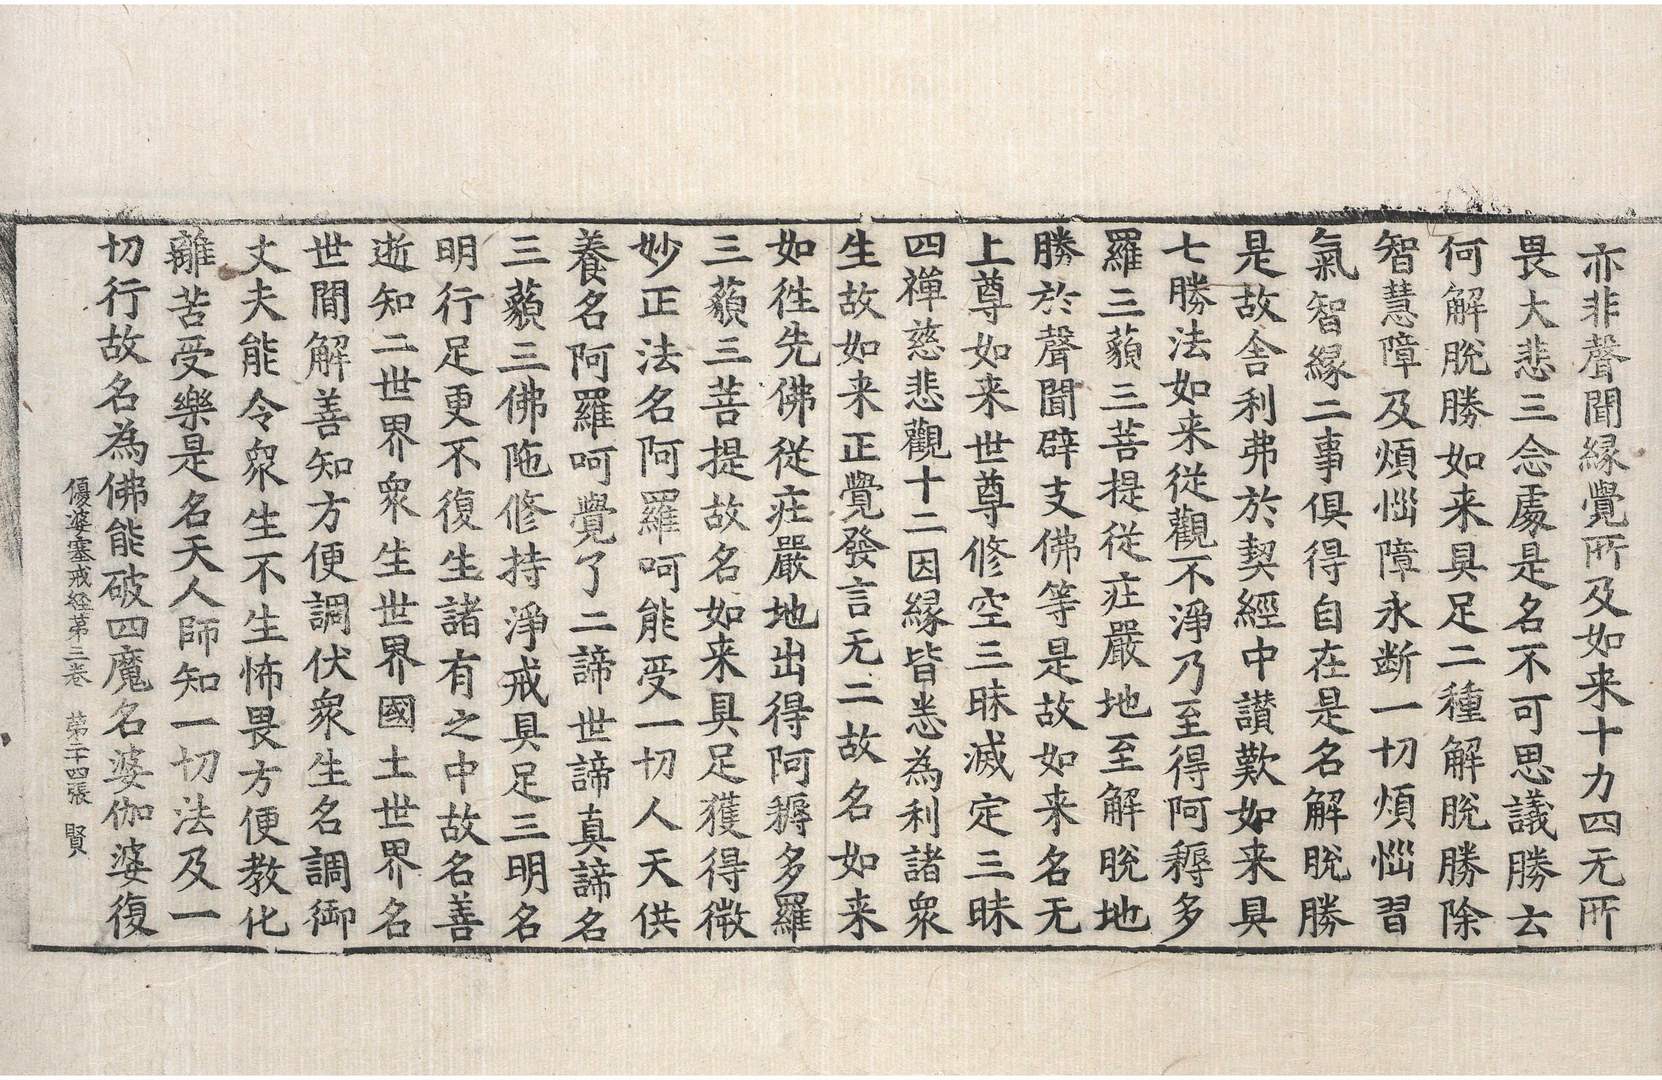 亦非聲聞緣覺所及如来十力四无所
畏大悲三念處是名不可思議勝云
何解脫勝如来具足二種解脫勝除
智慧障及煩惱障永断一切煩惱習
氣智緣二事俱得自在是名解脫勝
是故舍利弗於契經中讃歎如来具
七勝法如来從觀不淨乃至得阿耨多
羅三藐三菩提從莊嚴地至解脫地
勝於聲聞辟支佛等是故如来名无
上尊如来世尊修空三昧滅定三昧
四禪慈悲觀十二因緣皆悉為利諸衆
生故如来正覺發言无二故名如来
如徃先佛從莊嚴地出得阿耨多羅
三藐三菩提故名如来具足獲得微
妙正法名阿羅呵能受一切人天供
養名阿羅呵覺了二諦世諦真諦名
三藐三佛陁修持淨戒具足三明名
明行足更不復生諸有之中故名善
逝知二世界衆生世界國土世界名
世間解善知方便調伏衆生名調御
丈夫能令衆生不生怖畏方便教化
離苦受樂是名天人師知一切法及一
切行故名為佛能破四魔名婆伽婆復
優婆塞戒経第三卷 第二十四張 賢